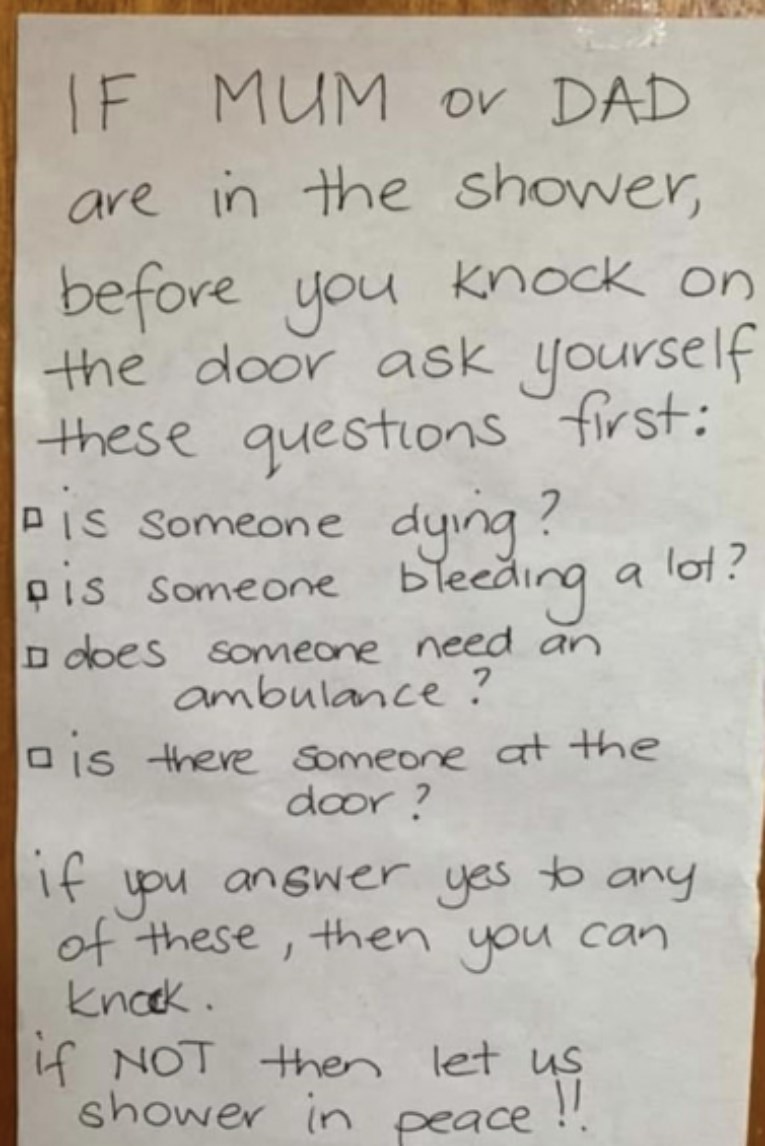 IF MUM or DAD
are in the shower,
before you knock on
the door ask yourself
these questions first:
□ is someone dying?
□ is someone bleeding a lot?
□ does someone need an
ambulance?
□ is there someone at the
door?
if you answer yes to any
of these, then you can
knock.
if NOT then let us
shower in peace!!